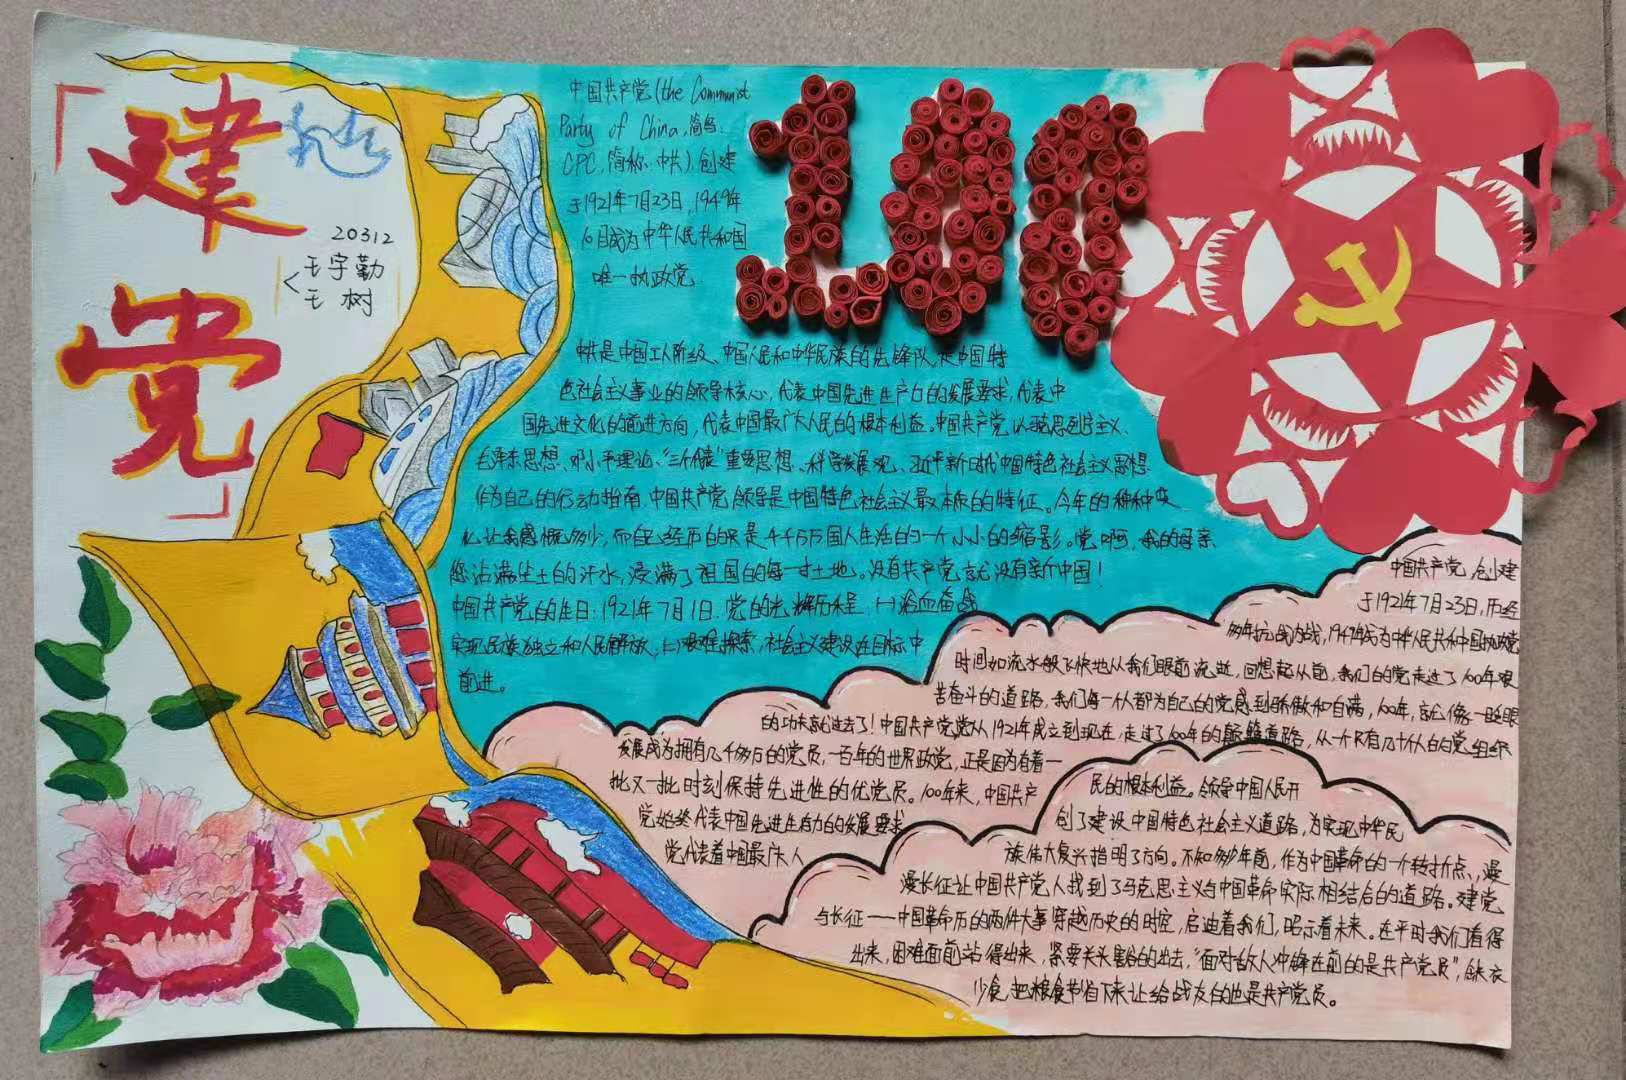 「建党」
20312
王宇勤
王树
100
中国共产党(the Communist
Party of China,简写:
CPC,简称:中共),创建
于1921年7月23日,1949年
10月成为中华人民共和国
唯一执政党
中共是中国工人阶级、中国人民和中华民族的先锋队,是中国特
色社会主义事业的领导核心,代表中国先进生产力的发展要求,代表中
国先进文化的前进方向,代表中国最广大人民的根本利益。中国共产党以马克思列宁主义、
毛泽东思想、邓小平理论、“三个代表”重要思想、科学发展观、习近平新时代中国特色社会主义思想
作为自己的行动指南,中国共产党领导是中国特色社会主义最本质的特征。今年的种种变
化让我感慨多少,而自己经历的只是千千万万国人生活的一个小小的缩影。党啊,我的母亲
您沾满尘土的汗水,浸满了祖国的每一寸土地。没有共产党就没有新中国!
中国共产党的生日:1921年7月1日.党的光辉历程:(一)浴血奋战
实现民族独立和人民解放,(二)艰难探索,社会主义建设在目标中
前进。
中国共产党,创建
于1921年7月23日,历经
多年抗战内战,1949年成为中华人民共和国执政党
时间如流水般飞快地从我们眼前流逝,回想起从前,我们的党走过了100年艰
苦奋斗的道路,我们每一个人都为自己的党感到骄傲和自满,100年,就像一眨眼
的功夫就过去了!中国共产党党从1921年成立到现在,走过了100年的颠簸道路,从一个只有几十个人的党组织
发展成为拥有几千多万的党员,一百年的世界政党,正是因为有着一
批又一批时刻保持先进性的优党员。100年来,中国共产
党始终代表中国先进生产力的发展要求
党代表着中国最广大人
民的根本利益。领导中国人民开
创了建设中国特色社会主义道路,为实现中华民
族伟大复兴指明了方向。不知多少年前,作为中国革命的一个转折点,漫
漫长征让中国共产党人找到了马克思主义与中国革命实际相结合的道路。建党
与长征——中国革命历的两件大事穿越历史的时空,启迪着我们,昭示着未来。在平时我们看得
出来,困难面前站得出来,紧要关头豁的出去,“面对敌人冲锋在前的是共产党员”,缺衣
少食把粮食节省下来让给战友的也是共产党员。